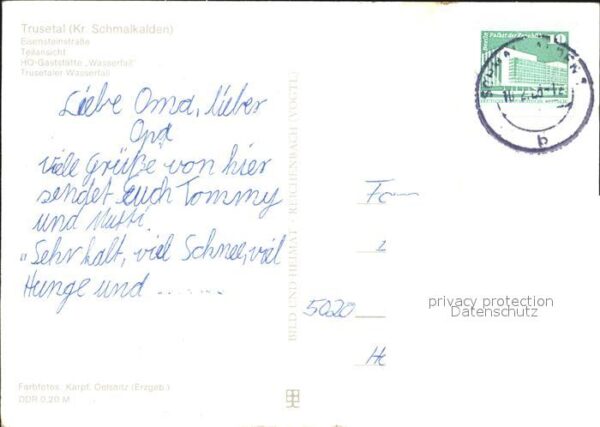 Trusetal (Kr. Schmalkalden)
Eisensteinstraße
Teilansicht
HO-Gaststätte „Wasserfall"
Trusetaler Wasserfall
Liebe Oma, lieber
Opa
viele Grüße von hier
sendet Euch Tommy
und Mutti.
„Sehr kalt, viel Schnee, viel
Hunge und ........
Farbfotos: Karpf, Oelsnitz (Erzgeb.)
DDR 0,20 M
BILD UND HEIMAT · REICHENBACH (VOGTL)
10
5020
privacy protection
Datenschutz
b